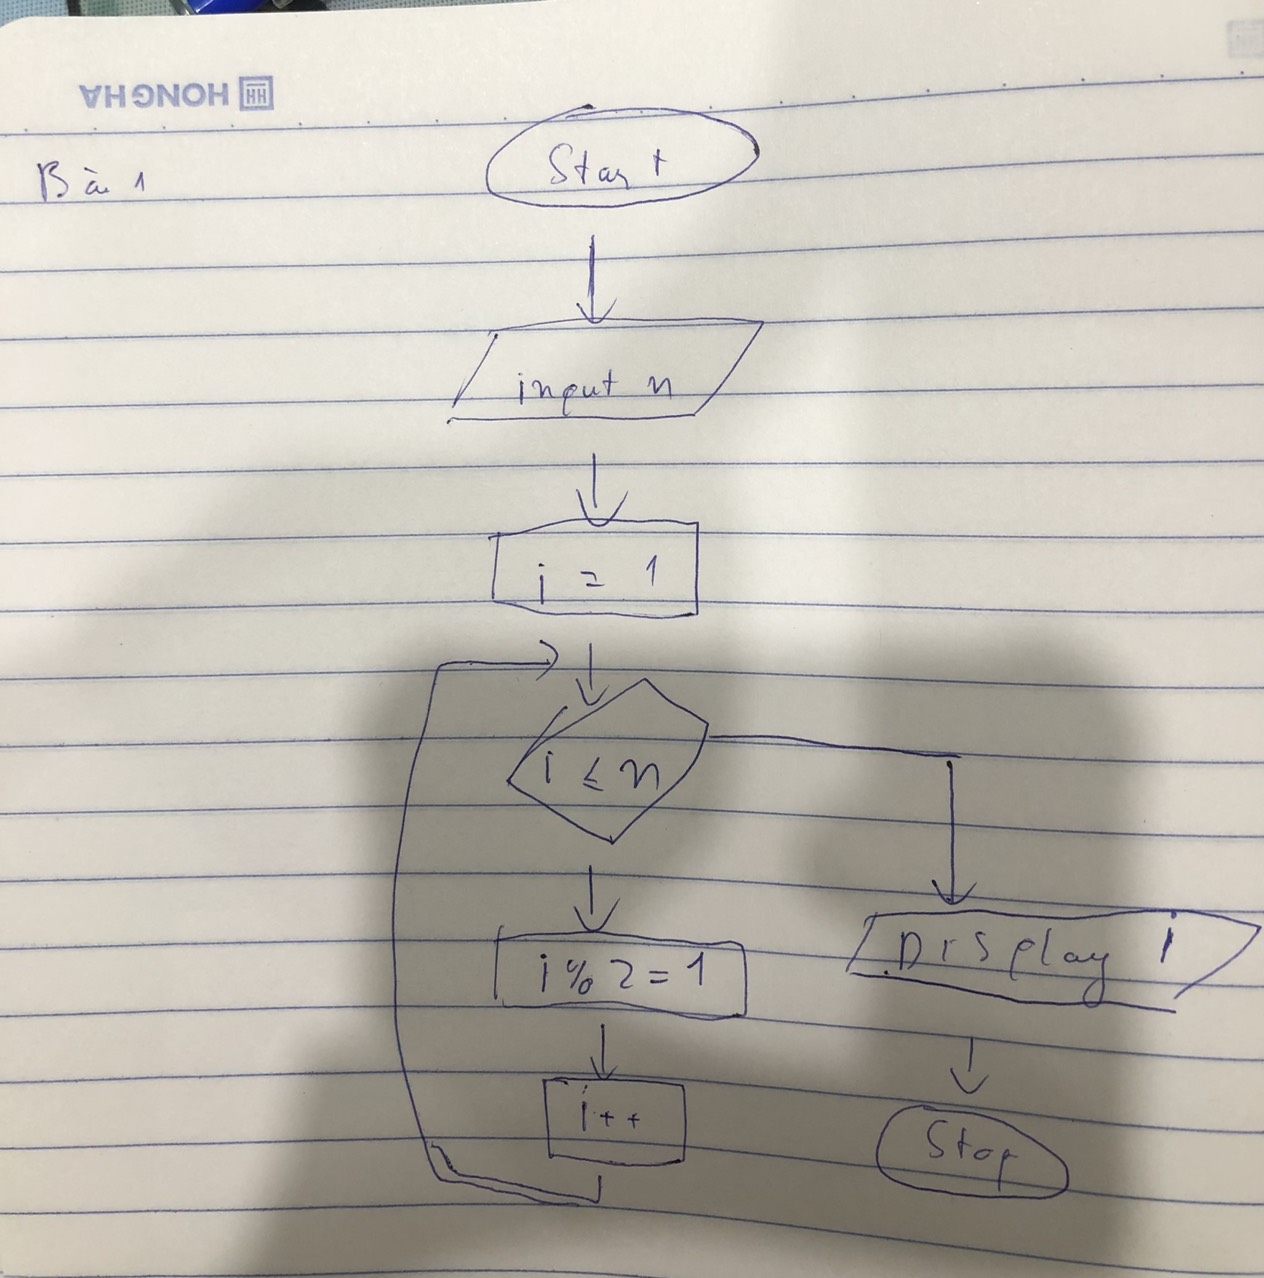 HONG HA
Bài 1
Start
input n
i = 1
i ≤ n
i % 2 = 1
Display i
i++
Stop